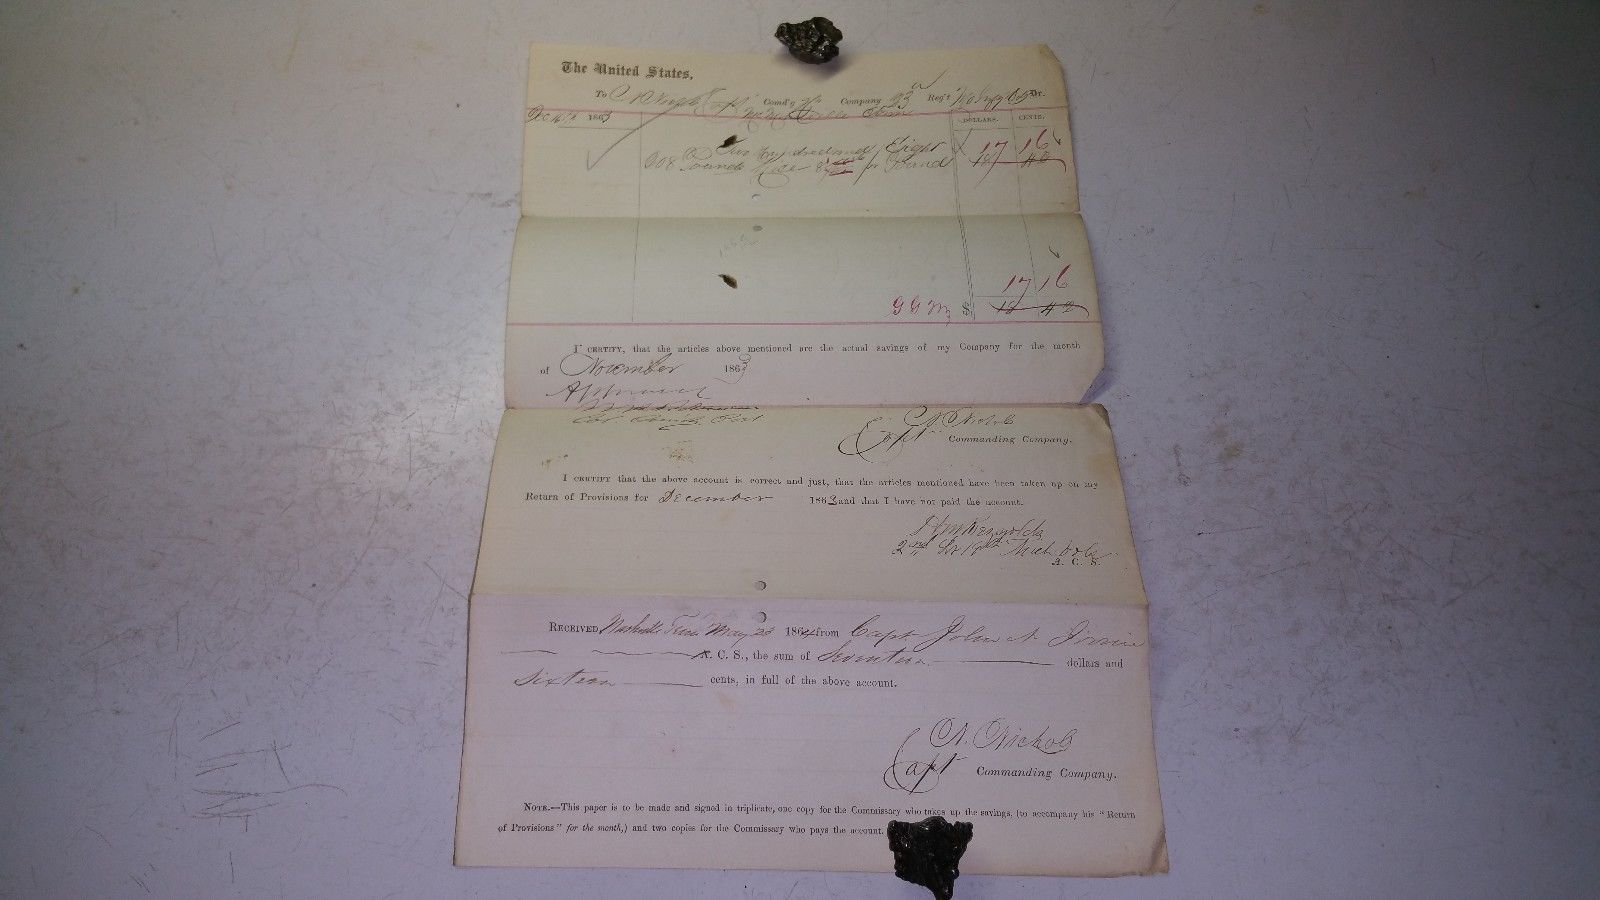 The United States,
To Capt Comd'g Company 23 Reg't Dr.
Dec 1863 Tenn DOLLARS. CENTS.
Two Hundred and Eight
208 Pounds Rice 8 pr Pound 17 16
1864
17 16
G G M $ 18 42
I CERTIFY, that the articles above mentioned are the actual savings of my Company for the month
of November 1863
Approved
Col Comdg Post
N Nichols
Capt Commanding Company.
I CERTIFY that the above account is correct and just, that the articles mentioned have been taken up on my
Return of Provisions for December 1863 and that I have not paid the account.
H M Reynolds
2nd Lt 18th Mich Vols
A. C. S.
RECEIVED, Nashville Tenn May 23 1864 from Capt John
A. C. S., the sum of Seventeen dollars and
Sixteen cents, in full of the above account.
N. Nichols
Capt Commanding Company.
NOTE.—This paper is to be made and signed in triplicate, one copy for the Commissary who takes up the savings, (to accompany his "Return
of Provisions" for the month,) and two copies for the Commissary who pays the account.